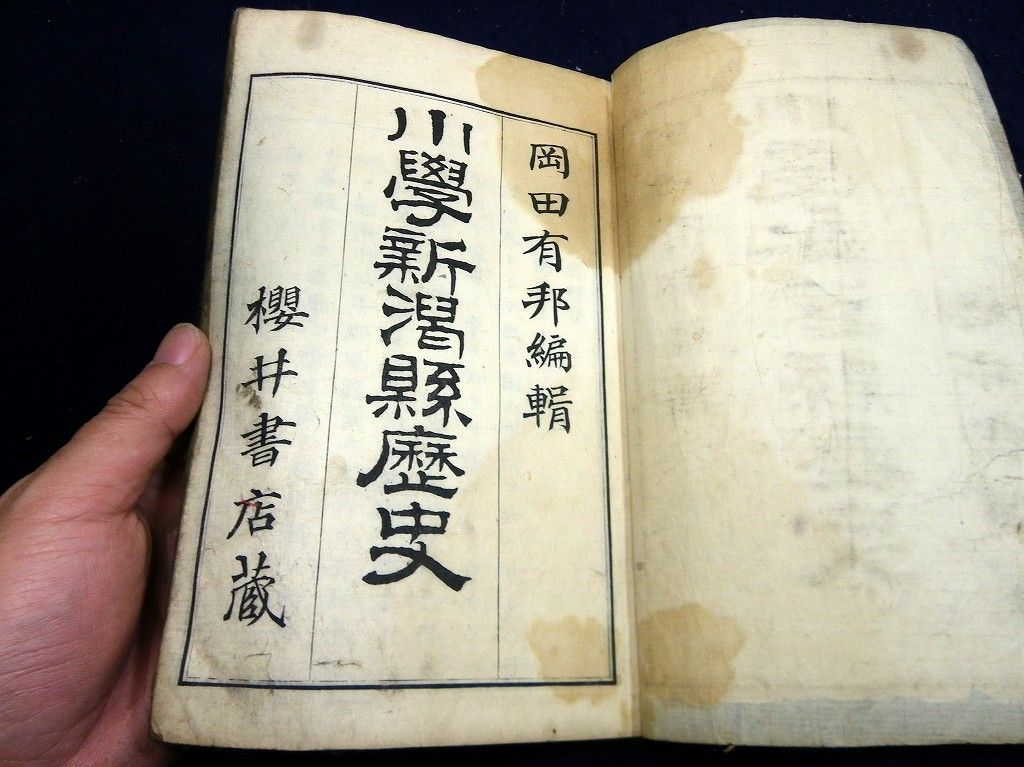 岡田有邦編輯
小學新潟縣歷史
櫻井書店蔵